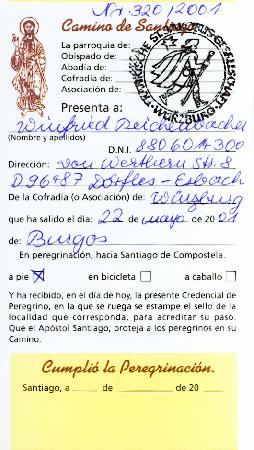 Nr 320/2001
Camino de Santiago
La parroquia de:
Obispado de:
Abadía de:
Cofradía de:
Asociación de:
Presenta a:
Winfried Reichenbacher
(Nombre y apellidos)
D.N.I. 8806017300
Dirección: von Werthern Str. 8
D 96487 Dörfles-Esbach
De la Cofradía (o Asociación) de: Würzburg
que ha salido el día: 22 de mayo de 2001
de: Burgos
En peregrinación, hacia Santiago de Compostela.
a pie X en bicicleta a caballo
Y ha recibido, en el día de hoy, la presente Credencial de
Peregrino, en la que se ruega se estampe el sello de la
localidad que corresponda, para acreditar su paso.
Que el Apóstol Santiago, proteja a los peregrinos en su
Camino.
Cumplió la Peregrinación.
Santiago, a de de 20